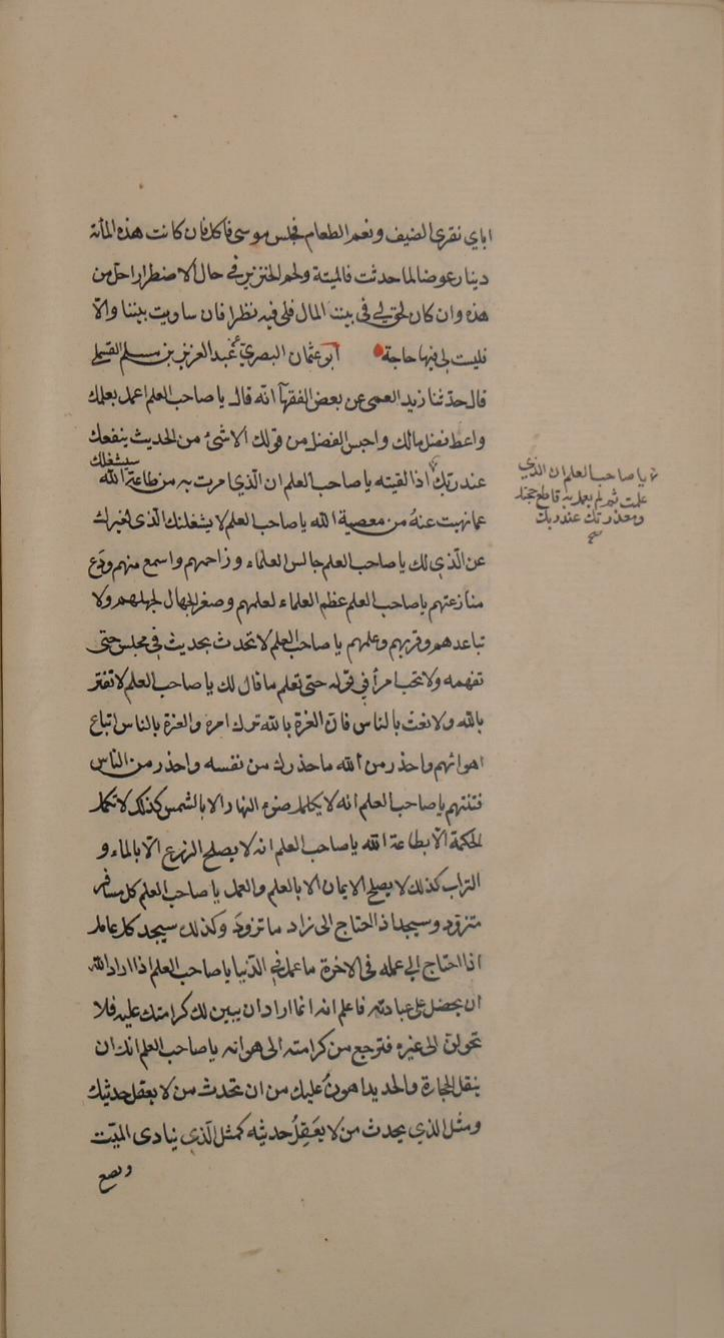 اباي نقري الضيف ونعم الطعام فجلس موسى فاكل فان كانت هذه المأة
دينار عوضا لما حدثت فالميتة ولحم الخنزير في حال الاضطرار احل من
هذه وان كان لحق لي في بيت المال فلي فيه نظرا فان ساويت بيننا والّا
فليت لي فيها حاجة ابو عثمان البصري عن عبد العزيز بن مسلم القسملي
قال حدثنا زيد العمى عن بعض الفقهآ انّه قال يا صاحب العلم اعمل بعلمك
واعط فضل مالك واحبس الفضل من قولك الا شئ من الحديث ينفعك
عند ربك اذا لقيته يا صاحب العلم ان الّذي امرت به من طاعة الله سيشغلك
عما نهيت عنهُ من معصية الله يا صاحب العلم لا يشغلنك الّذى لغيرك
عن الّذي لك يا صاحب العلم جالس العلماء وزاحمهم واسمع منهم ودَع
منازعتهم يا صاحب العلم عظم العلماء لعلمهم وصغر الجهال لجهلهم ولا
تباعدهم وقربهم وعلمهم يا صاحب العلم لا تحدث بحديث في مجلس حتى
تفهمه ولا تجب امرأ في قوله حتى تعلم ما قال لك يا صاحب العلم لا تغتر
بالله ولا تغتر بالناس فان الغرة بالله ترك امره والغرة بالناس اتباع
اهوائهم واحذر من الله ما حذرك من نفسه واحذر من الناس
فتنتهم يا صاحب العلم انه لا يكمل ضوء النهار الا بالشمس كذلك لا تكمل
الحكمة الّا بطاعة الله يا صاحب العلم انه لا يصلح الزرع الّا بالماء و
التراب كذلك لا يصلح الايمان الا بالعلم والعمل يا صاحب العلم كل مسافر
متزوّد وسيجد اذا احتاج الى زاد ما تزودَ وكذلك سيجد كل عامل
اذا احتاج الى عمله في الاخرة ما عمل في الدّنيا يا صاحب العلم اذا اراد الله
ان يحضك على عبادته فاعلم انه انما اراد ان يبين لك كرامتك عليه فلا
تحولن الى غيره فترجع من كرامته الى هوانه يا صاحب العلم انك ان
ينقل الحجارة والحديد اهونُ عليك من ان تحدث من لا يعقل حديثك
ومثل الذي يحدث من لا يَعقِلُ حديثه كمثل الّذي ينادى الميّت
ويضع
يا صاحب العلم ان الذي
علمت ثم لم يعمل به قاطع حجتك
ومعذرتك عند ربك
صح